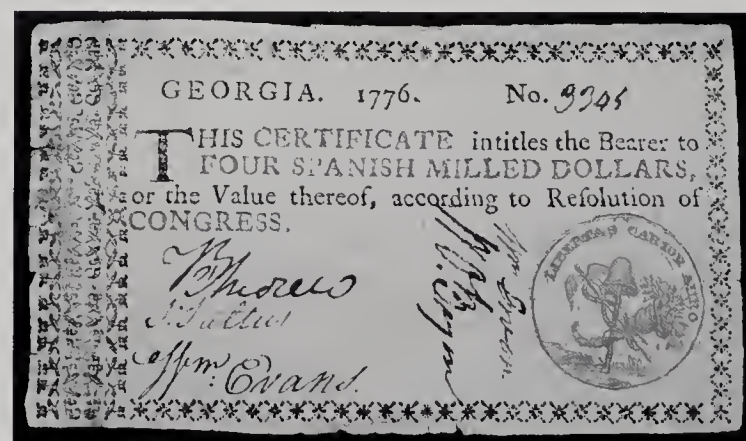 GEORGIA. 1776. No. 3345
THIS CERTIFICATE intitles the Bearer to
FOUR SPANISH MILLED DOLLARS,
or the Value thereof, according to Reſolution of
CONGRESS.
Wm. Evans.
LIBERTAS CARIOR AURO